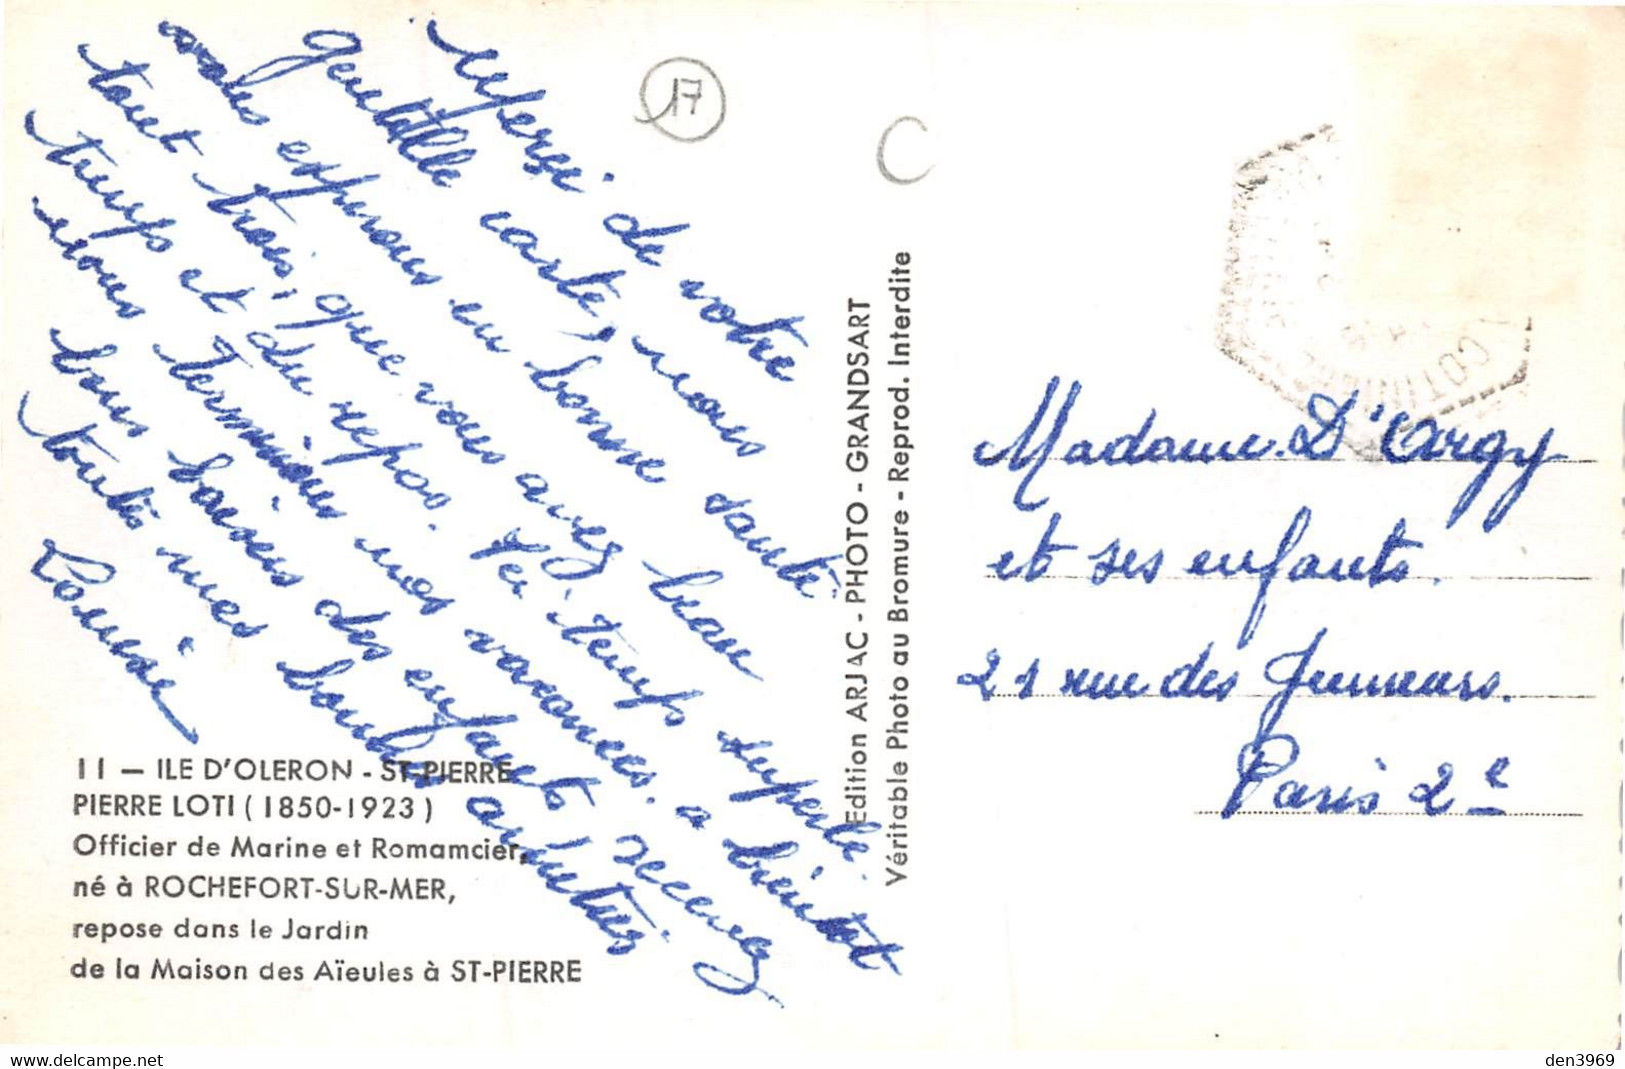 Merci de votre
gentille carte, nous
vous espérons en bonne santé
tout trois, que vous avez beau
temps et du repos. Ici temps superbe.
nous terminons nos vacances. a bientot
bons baisers des enfants recevez
toutes mes bonnes amitiés
Louise
17
C
11 — ILE D'OLERON - ST-PIERRE
PIERRE LOTI ( 1850-1923 )
Officier de Marine et Romamcier,
né à ROCHEFORT-SUR-MER,
repose dans le Jardin
de la Maison des Aïeules à ST-PIERRE
Edition ARJAC - PHOTO - GRANDSART
Véritable Photo au Bromure - Reprod. Interdite
COTINIÈRE
Madame D'Argy
et ses enfants.
21 rue des Jeuneurs.
Paris 2e
www.delcampe.net
den3969